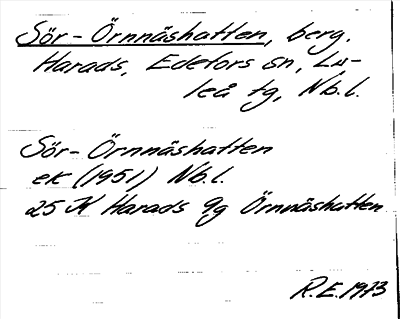 Sör-Örnnäshatten, berg,
Harads, Edefors sn, Lu-
leå tg, Nb.l.
Sör-Örnnäshatten
ek (1951) Nb.l.
25 K Harads 9g Örnnäshatten
R.E. 1973